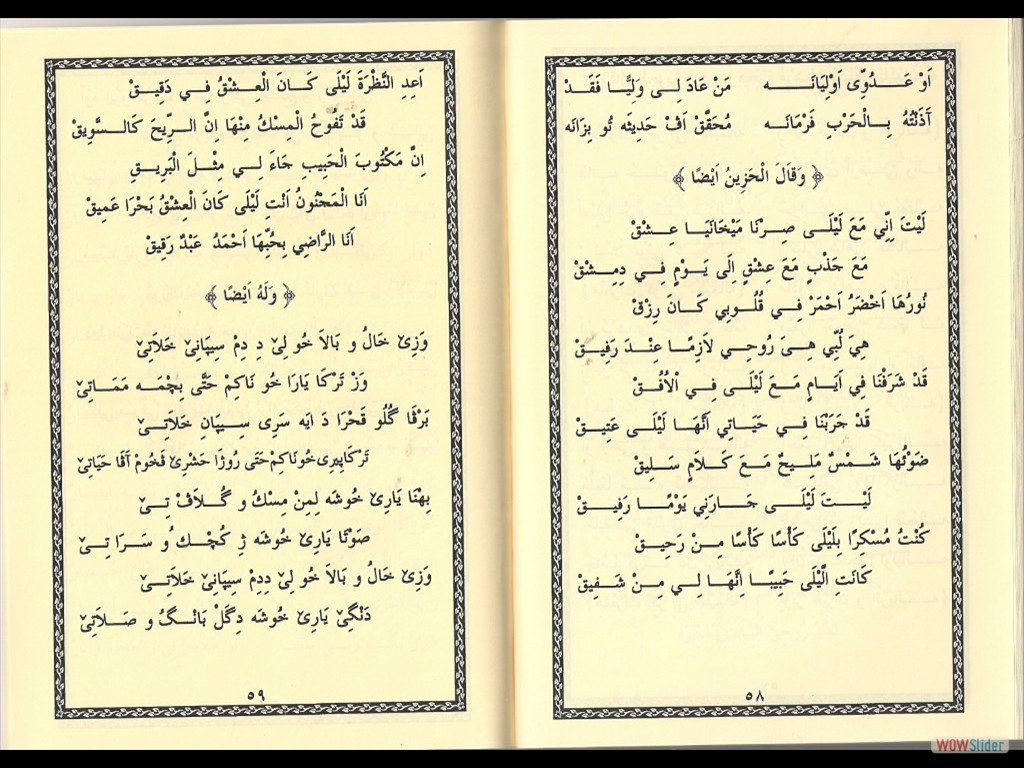 اَوْ عَـــدُوِّى اَوْلِيَانَـــــه مَنْ عَادَ لِــى وَلِيًّـا فَقَـدْ
آذَنْتُهُ بِــالْحَرْبِ فَرْمَانَــه مُحَقَّقْ اَڤْ حَدِيثَه تُو بِزَانَه
﴿ وَقَالَ الْحَزِينُ اَيْضًا ﴾
لَيْتَ اِنِّي مَعَ لَيْلَـى صِـرْنَا مَيْخَانَيَـا عِــشْقْ
مَعَ جَذْبٍ مَعَ عِشْقٍ اِلَى يَــوْمٍ فِـي دِمِــشْقْ
نُورُهَا اَخْضَرُ اَحْمَرْ فِــي قُلُــوبِي كَــانَ رِزْقْ
هِيَ لُبِّي هِـىَ رُوحِـي لاَزِمًـا عِنْـدَ رَفِيـقْ
قَدْ شَرَفْنَا فِي اَيَـامٍ مَــعَ لَيْلَــى فِــي اْلاُفُــقْ
قَدْ جَرَبْنَا فِــي حَيَـاتِي اَنَّهَــا لَيْلَـى عَتِيـقْ
ضَوْئُهَا شَــمْسٌ مَلِــيحٌ مَـعَ كَـلاَمٍ سَـلِيقْ
لَيْـــتَ لَيْلَــى جَــارَنِي يَوْمًــا رَفِيـقْ
كُنْتُ مُسْكِرًا بِلَيْلَى كَأْسًا كَأْسًا مِــنْ رَحِيـقْ
كَانَتِ الَّيْلَى حَبِيبًــا اِنَّهَـا لِـي مِـنْ شَـفِيقْ
٥٨
اَعِدِ النَّظْرَةَ لَيْلَى كَــانَ الْعِــشْقُ فِــي دَقِيــقْ
قَدْ تَفُوحُ الْمِسْكُ مِنْهَا اِنَّ الـرِّيحَ كَالـسَّوِيقْ
اِنَّ مَكْتُوبَ الْحَبِيبِ جَاءَ لِــي مِثْـلَ الْبَرِيـقِ
اَنَا الْمَجْنُونُ اَنْتِ لَيْلَى كَانَ الْعِشْقُ بَحْرَا عَمِيقْ
اَنَا الرَّاضِي بِحُبِّهَا اَحْمَدُ عَبْدٌ رَقِيقْ
﴿ وَلَهُ اَيْضًا ﴾
وَزِىْ خَالُ و بَالاَ خُو لِىْ دِ دِمْ سِيپَانِىْ خَلاَتِىْ
وَزْ تَرْكَا يَارَا خُو نَاكِمْ حَتَّى بِچْمَــه مَمَــاتِىْ
بَرْقَا گُلُو قَحْرَا دَ ايَه سَرِى سِــيپَانِ خَلاَتِــىْ
تَرْكَاپِيرِى خُونَاكِمْ حَتَى رُوژَا حَشْرِىْ قَخُومْ آڤَا حَيَاتِىْ
بِهْنَا يَارِىْ خُوشَه لِمِنْ مِسْكُ و گُــلاَڤْ تِــىْ
صَوْتَا يَارِىْ خُوشَه ژِ كُچِـكُ و سَــرَا تِـىْ
وَزِىْ خَالُ و بَالاَ خُو لِىْ دِدِمْ سِيپَانِىْ خَلاَتِــىْ
دَنْگِىْ يَارِىْ خُوشَه دِگَلْ بَانْـگُ و صَـلاَتِىْ
٥٩
WOWSlider